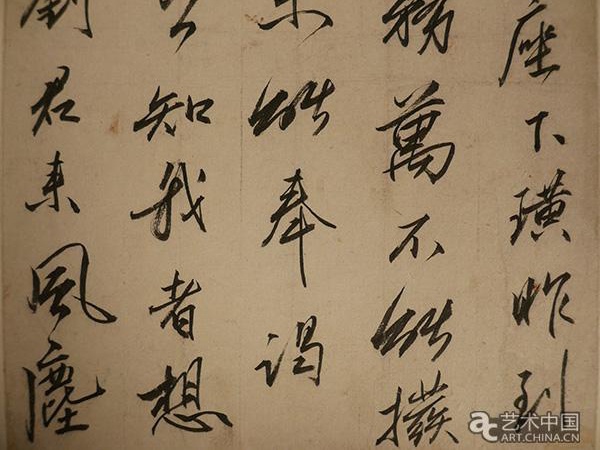 座下璜昨到
務萬不能撥
未能奉谒
公知我者想
劉君来風塵
艺术中国
ART.CHINA.CN